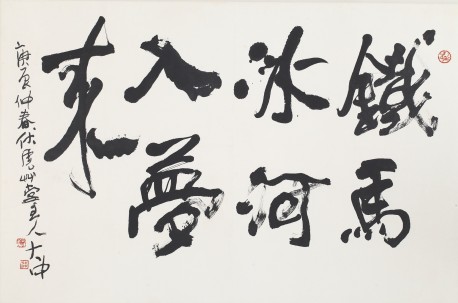 鐵馬
冰河
入夢
來
庚辰仲春伏虎草堂主人大中